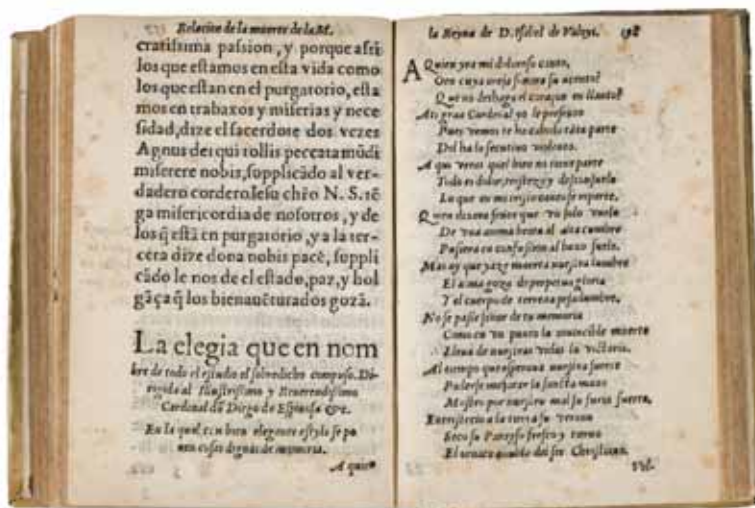 Relacion de la muerte de la M.
cratissima passion, y porque assi
los que estamos en esta vida como
los que estan en el purgatorio, esta
mos en trabaxos y miserias y nece
sidad, dize el sacerdote dos vezes
Agnus dei qui tollis peccata mūdi
miserere nobis, supplicādo al ver-
dadero cordero Iesu chr̄o N. S. tē
ga misericordia de nosotros, y de
los q̄ estā en purgatorio, y a la ter-
cera dize dona nobis pacē, suppli
cādo le nos de el estado, paz, y hol
gāça q̄ los bienauēturados gozā.
La elegia que en nom
bre de todo el estudio el sobredicho compuso. Di-
rigida al Illustrissimo y Reuerendissimo
Cardenal dō Diego de Espinosa &c.
En la qual cō bien elegante estylo se po
nen cosas dignas de memoria.
A quiē
la Reyna de D. Ysabel de Valoys.
A Quien yra mi doloroso canto,
O en cuya oreja sonara su acento
Que no deshaga el coraçon en llanto?
A ti gran Cardenal yo le presento
Pues vemos te ha cabido tāta parte
Del hado secutiuo violento.
A qui veras quel bien no tiene parte
Todo es dolor, tristeza y desconsuelo
Lo que en mi triste canto se reparte.
Quien dixera señor que vn solo vuelo
De vna anima beata al alta cumbre
Pusiera en confusion al baxo suelo.
Mas ay que yaze muerta nuestra lumbre
El alma goza de perpetua gloria
Y el cuerpo de terrena pesadumbre.
No se passe señor de tu memoria
Como en vn punto la inuincible muerte
Lleua de nuestras vidas la victoria.
Al tiempo que esperaua nuestra suerte
Poderse mejorar la sancta mano
Mostro por nuestro mal su furia fuerte.
Entristecio a la terra su verano
Seco su Parayso fresco y tierno
El ornato del ser Christiano.